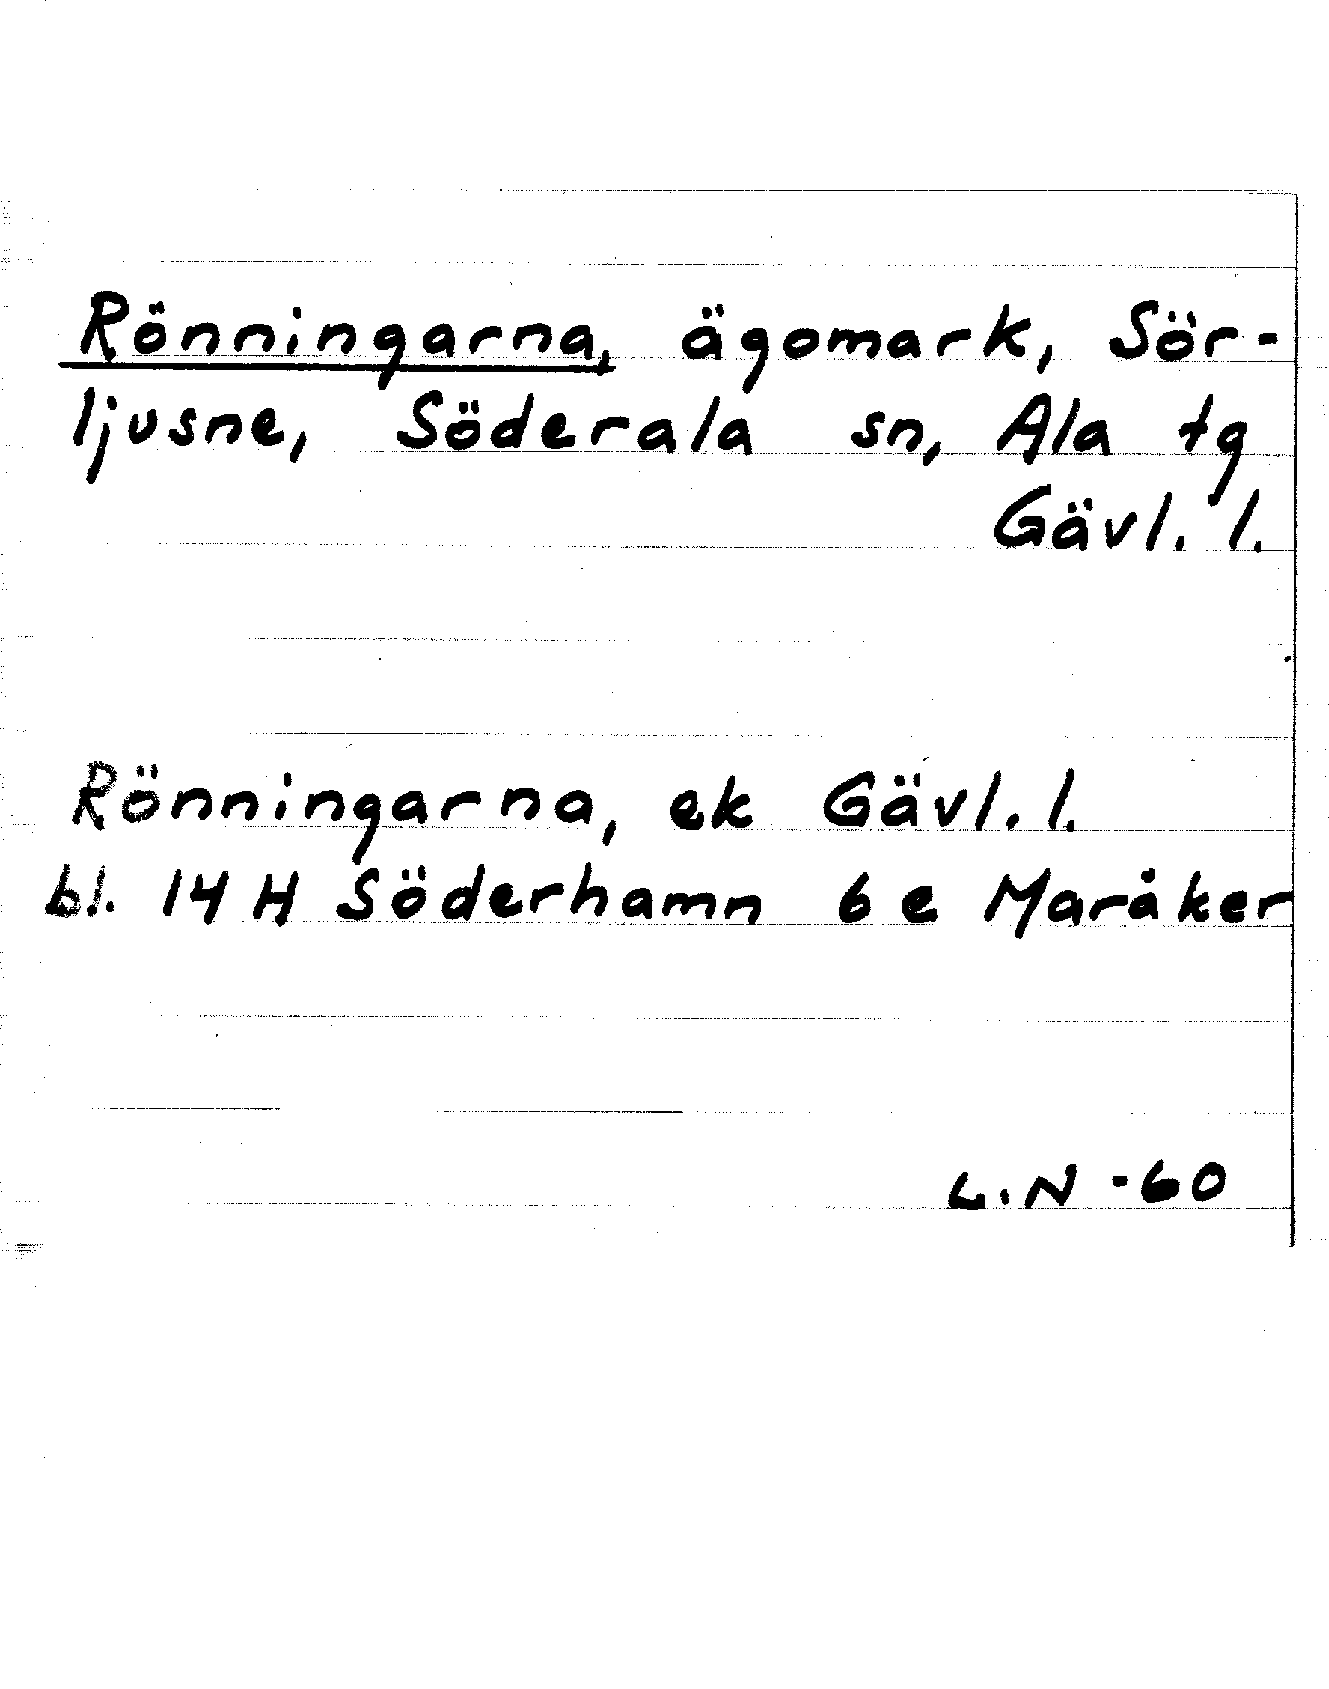 Rönningarna, ägomark, Sör-
ljusne, Söderala sn, Ala tg
Gävl. l.
Rönningarna, ek Gävl. l.
bl. 14 H Söderhamn 6 e Maråker
L.N -60